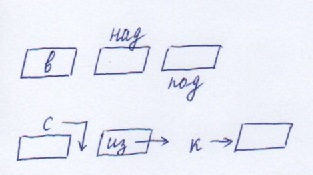 в над под
с из к